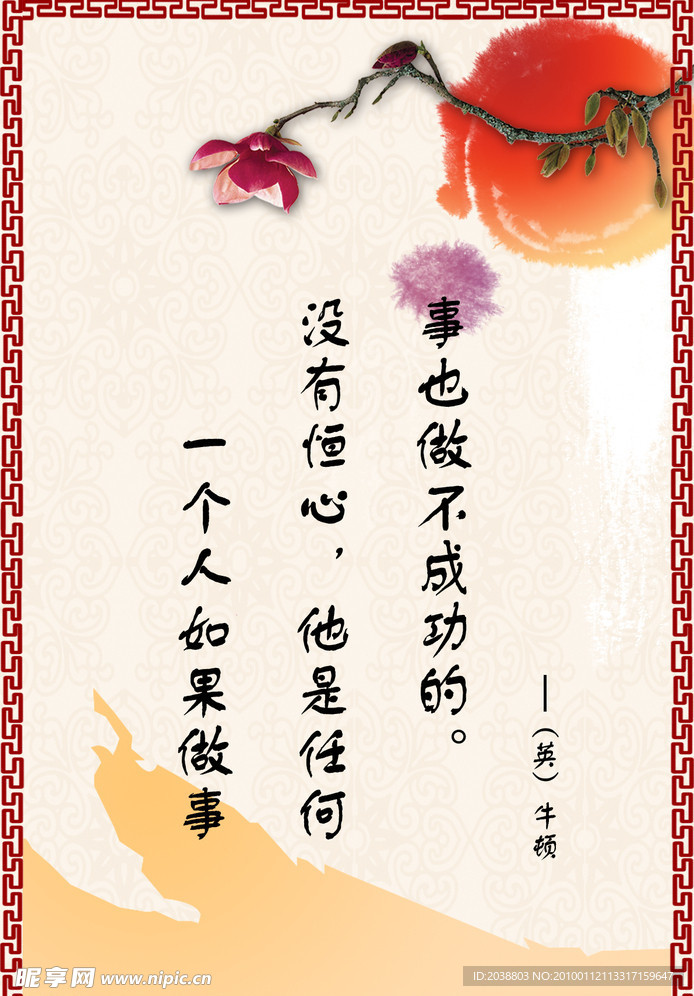 一个人如果做事
没有恒心，他是任何
事也做不成功的。
—（英）牛顿
昵享网 www.nipic.cn
ID:2038803 NO:20100112113317159647